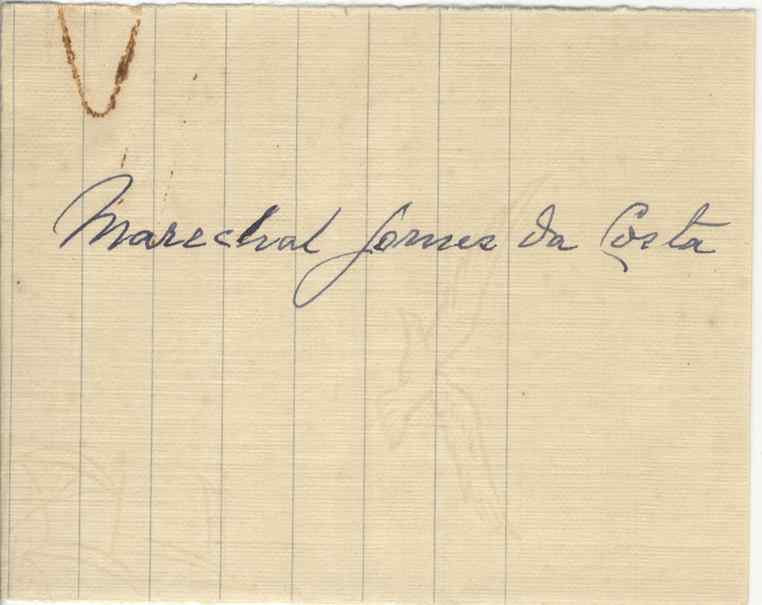 Marechal Gomes da Costa